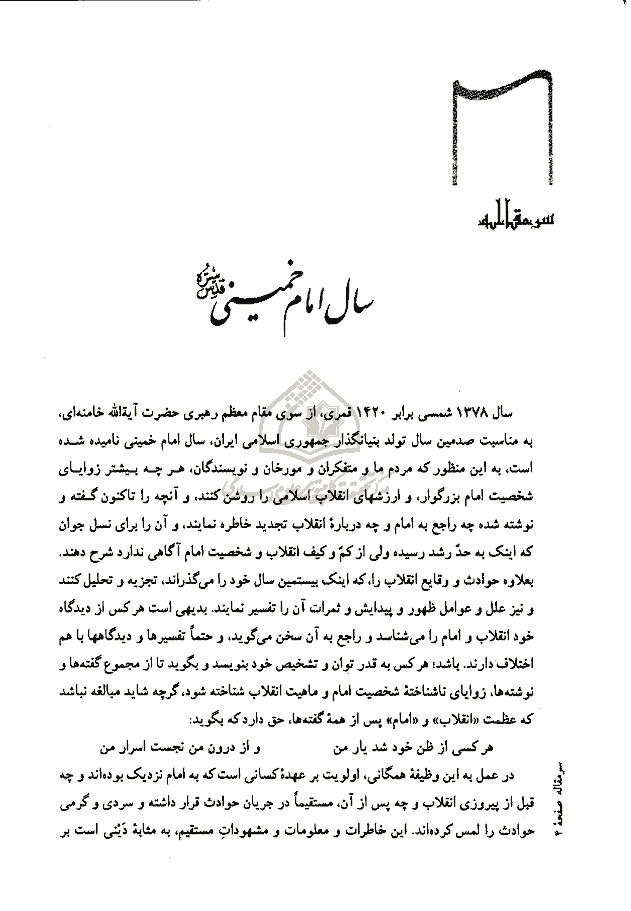 سرمقاله
سال امام خمینی قدس سره
سال ۱۳۷۸ شمسی برابر ۱۴۲۰ قمری، از سوی مقام معظم رهبری حضرت آیةالله خامنه‌ای،
به مناسبت صدمین سال تولد بنیانگذار جمهوری اسلامی ایران، سال امام خمینی نامیده شده
است، به این منظور که مردم ما و متفکران و مورخان و نویسندگان، هر چه بیشتر زوایای
شخصیت امام بزرگوار، و ارزشهای انقلاب اسلامی را روشن کنند، و آنچه را تاکنون گفته و
نوشته شده چه راجع به امام و چه دربارۀ انقلاب تجدید خاطره نمایند، و آن را برای نسل جوان
که اینک به حدّ رشد رسیده ولی از کمّ و کیف انقلاب و شخصیت امام آگاهی ندارد شرح دهند.
بعلاوه حوادث و وقایع انقلاب را، که اینک بیستمین سال خود را می‌گذراند، تجزیه و تحلیل کنند
و نیز علل و عوامل ظهور و پیدایش و ثمرات آن را تفسیر نمایند. بدیهی است هر کس از دیدگاه
خود انقلاب و امام را می‌شناسد و راجع به آن سخن می‌گوید، و حتماً تفسیرها و دیدگاهها با هم
اختلاف دارند. باشد؛ هر کس به قدر توان و تشخیص خود بنویسد و بگوید تا از مجموع گفته‌ها و
نوشته‌ها، زوایای ناشناختۀ شخصیت امام و ماهیت انقلاب شناخته شود، گرچه شاید مبالغه نباشد
که عظمت «انقلاب» و «امام» پس از همۀ گفته‌ها، حق دارد که بگوید:
هر کسی از ظن خود شد یار من و از درون من نجست اسرار من
در عمل به این وظیفۀ همگانی، اولویت بر عهدۀ کسانی است که به امام نزدیک بوده‌اند و چه
قبل از پیروزی انقلاب و چه پس از آن، مستقیماً در جریان حوادث قرار داشته و سردی و گرمی
حوادث را لمس کرده‌اند. این خاطرات و معلومات و مشهوداتِ مستقیم، به مثابۀ دَیْنی است بر
سرمقاله صفحۀ ۴